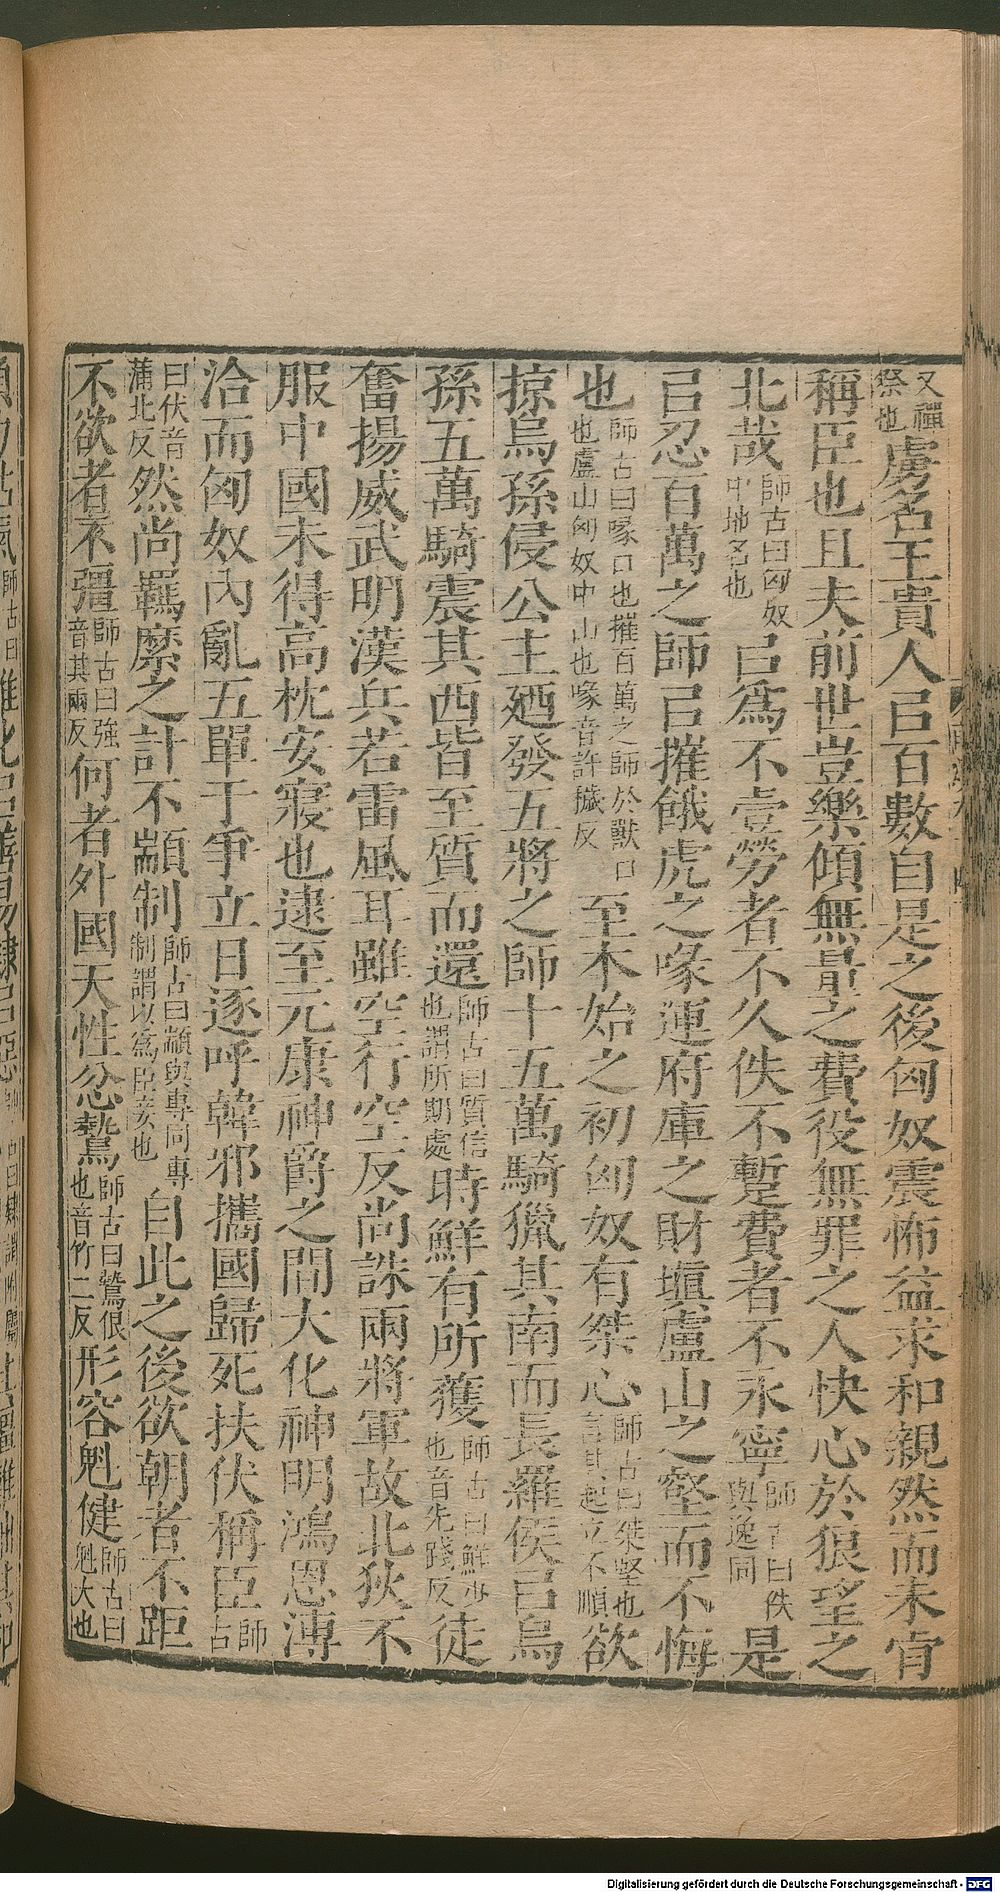 又禪祭也虜名王貴人㠯百數自是之後匈奴震怖益求和親然而未肯
稱臣也且夫前世豈樂傾無量之費役無罪之人快心於狼望之
北哉師古曰匈奴中地名也㠯爲不壹勞者不久佚不蹔費者不永寧師古曰佚與逸同是
㠯忍百萬之師㠯摧餓虎之喙運府庫之財塡盧山之壑而不悔
也師古曰喙口也摧百萬之師於獸口也盧山匈奴中山也喙音許穢反至本始之初匈奴有桀心師古曰桀堅也言其起立不順欲
掠烏孫侵公主廼發五將之師十五萬騎獵其南而長羅侯㠯烏
孫五萬騎震其西皆至質而還師古曰質信也謂所期處時鮮有所獲師古曰鮮少也音先踐反徒
奮揚威武明漢兵若雷風耳雖空行空反尚誅兩將軍故北狄不
服中國未得高枕安寢也逮至元康神爵之間大化神明鴻恩溥
洽而匈奴內亂五單于爭立日逐呼韓邪攜國歸死扶伏稱臣師古
曰伏音蒲北反然尚羈縻之計不顓制師古曰顓與專同專制謂以爲臣妾也自此之後欲朝者不距
不欲者不彊師古曰強音其兩反何者外國天性忿鷙師古曰鷙佷也音竹二反形容魁健師古曰魁大也
Digitalisierung gefördert durch die Deutsche Forschungsgemeinschaft - DFG